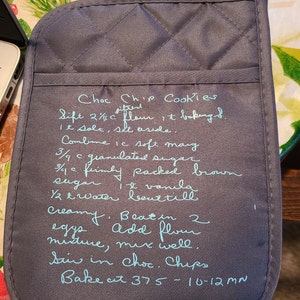 Choc Chip Cookies
sifted
Sift 2 1/2 c flour, 1 t baking S.
1 t salt, set aside.
Combine 1 c soft marg
3/4 c granulated sugar
3/4 c firmly packed brown
sugar 1 t vanila
1/2 t water beat till
creamy. Beat in 2
eggs Add flour
mixture, mix well.
Stir in Choc. Chips
Bake at 375 - 10-12 MN